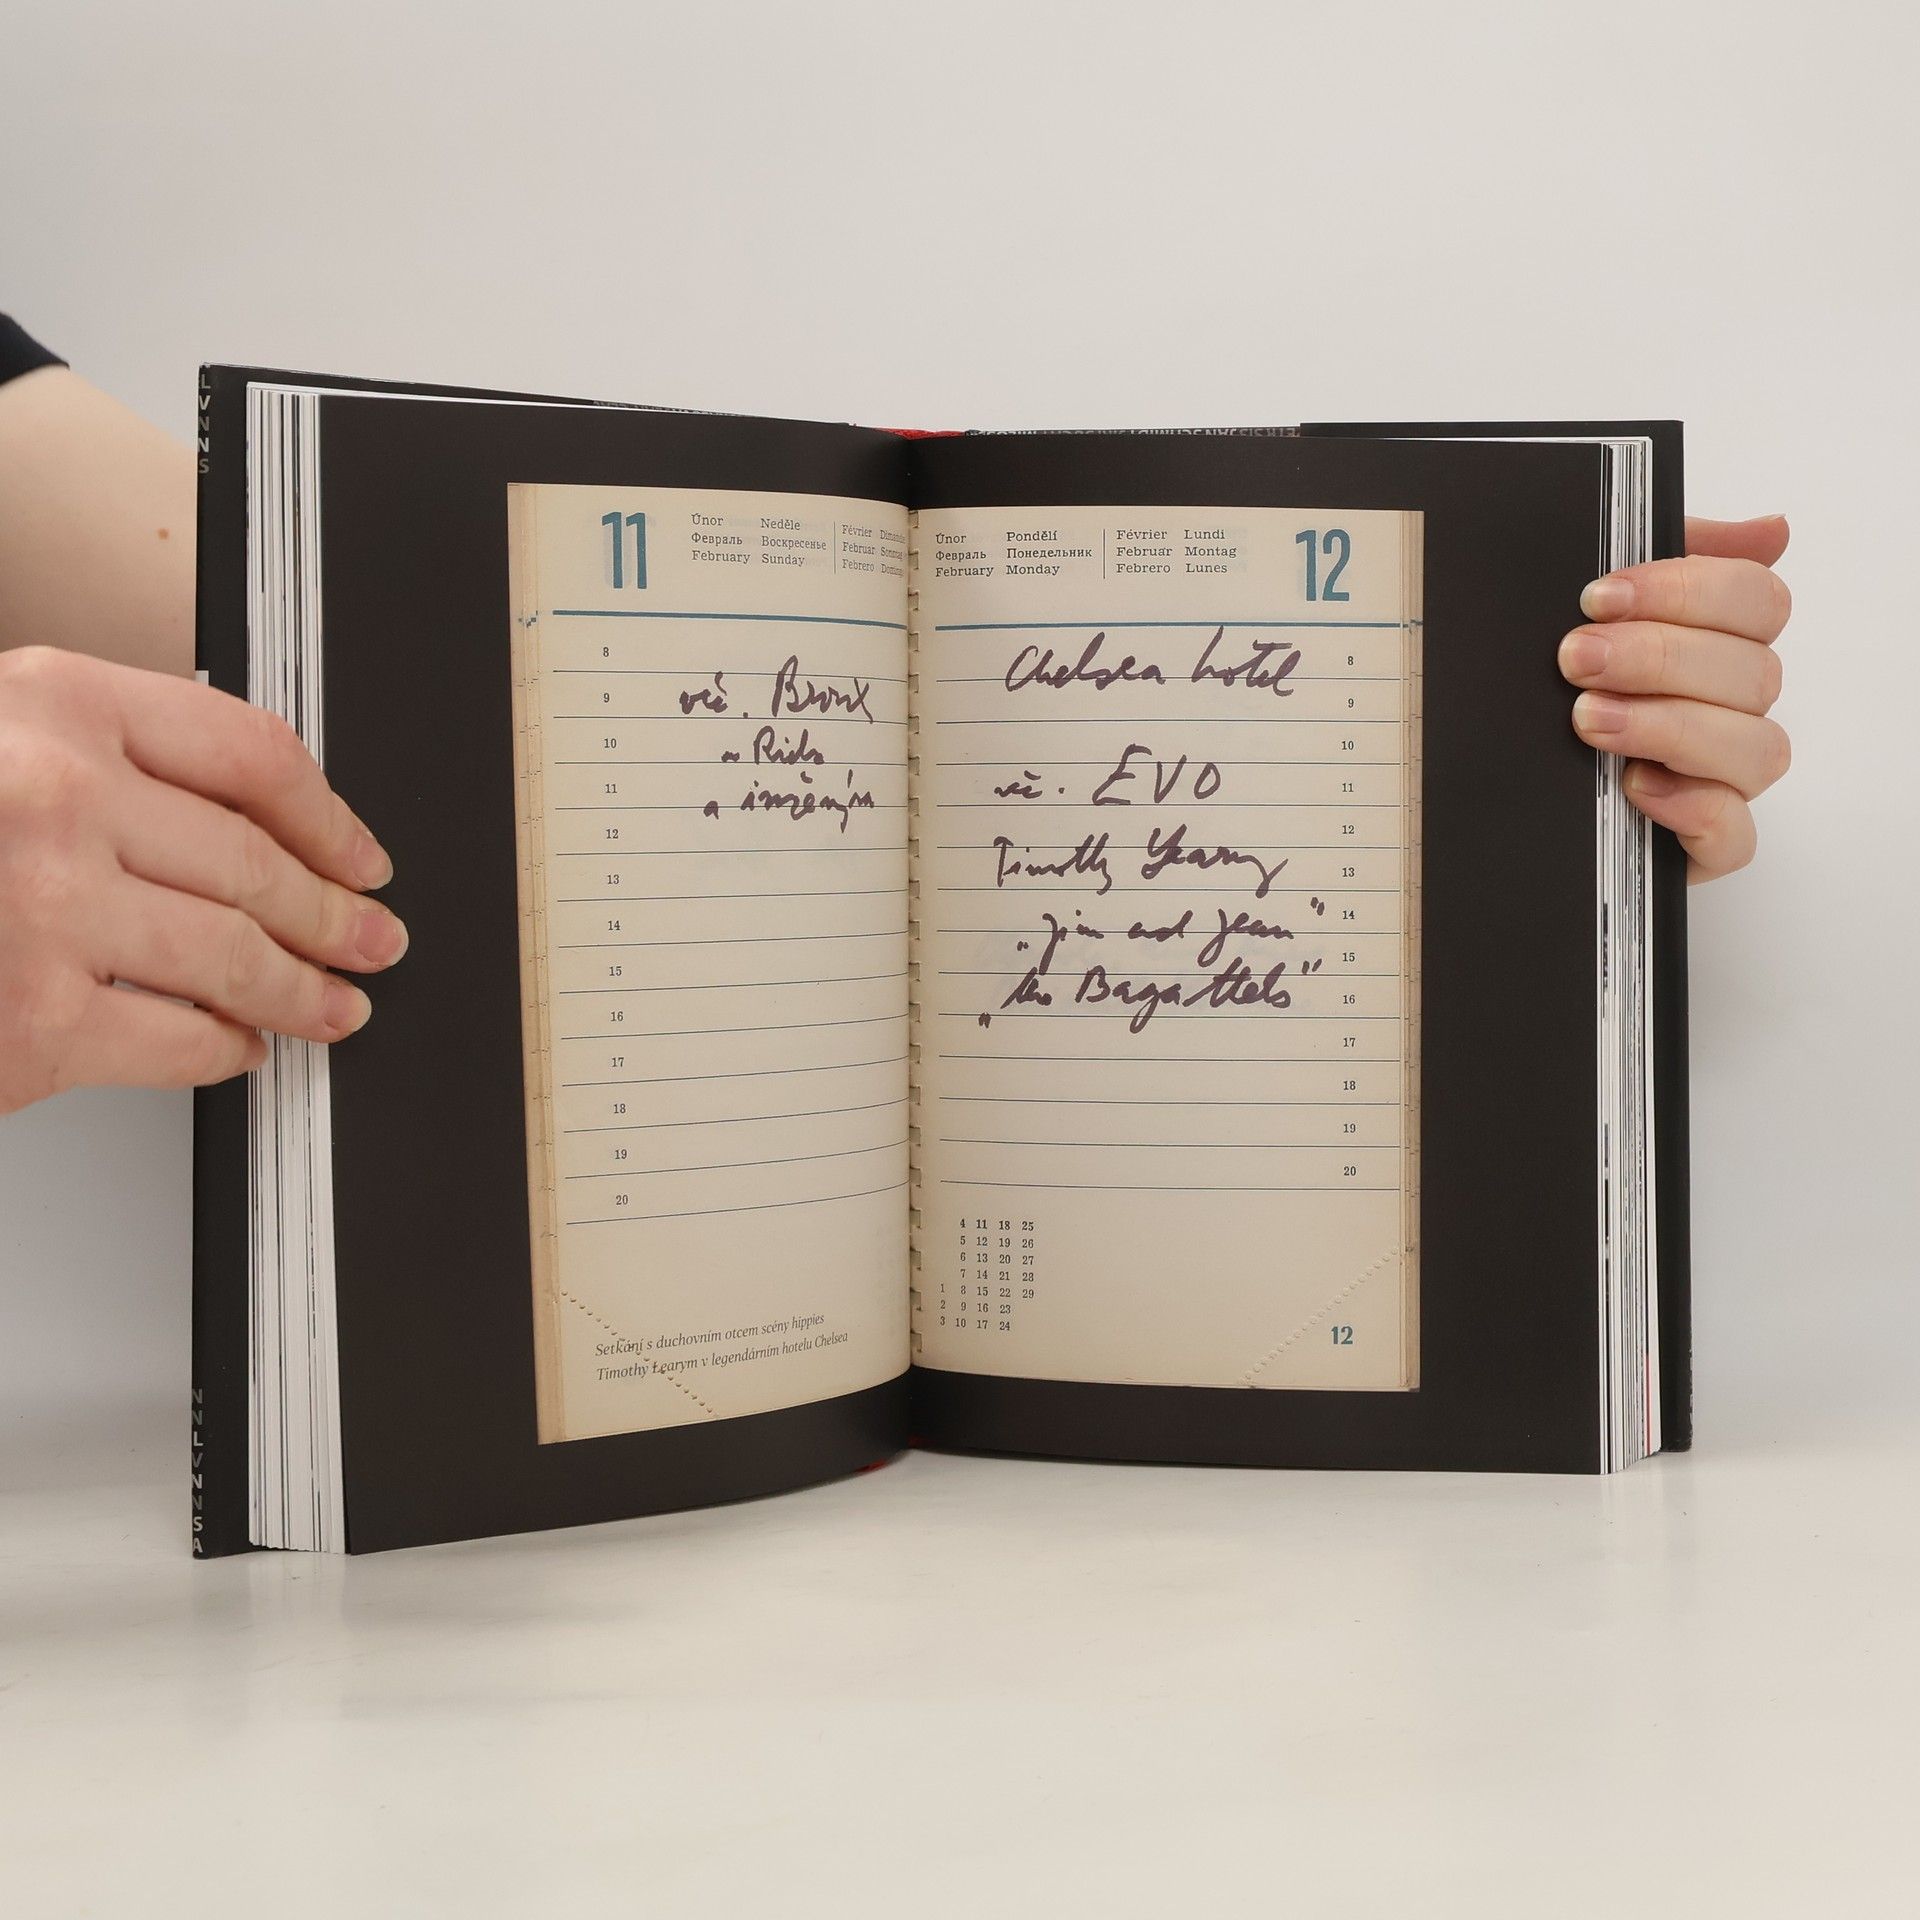 11
Únor Neděle
Февраль Воскресенье
February Sunday
Février
Februar
Febrero
8
9
10
11
12
13
14
15
16
17
18
19
20
več. Bronx
a inženýra
Setkání s duchovním otcem scény hippies
Timothy Learym v legendárním hotelu Chelsea
Únor Pondělí
Февраль Понедельник
February Monday
Février Lundi
Februar Montag
Febrero Lunes
12
8
9
10
11
12
13
14
15
16
17
18
19
20
Chelsea hotel
več. EVO
Timothy Leary
„Jim and Jean"
Bagattels"
4 11 18 25
5 12 19 26
6 13 20 27
7 14 21 28
1 8 15 22 29
2 9 16 23
3 10 17 24
12